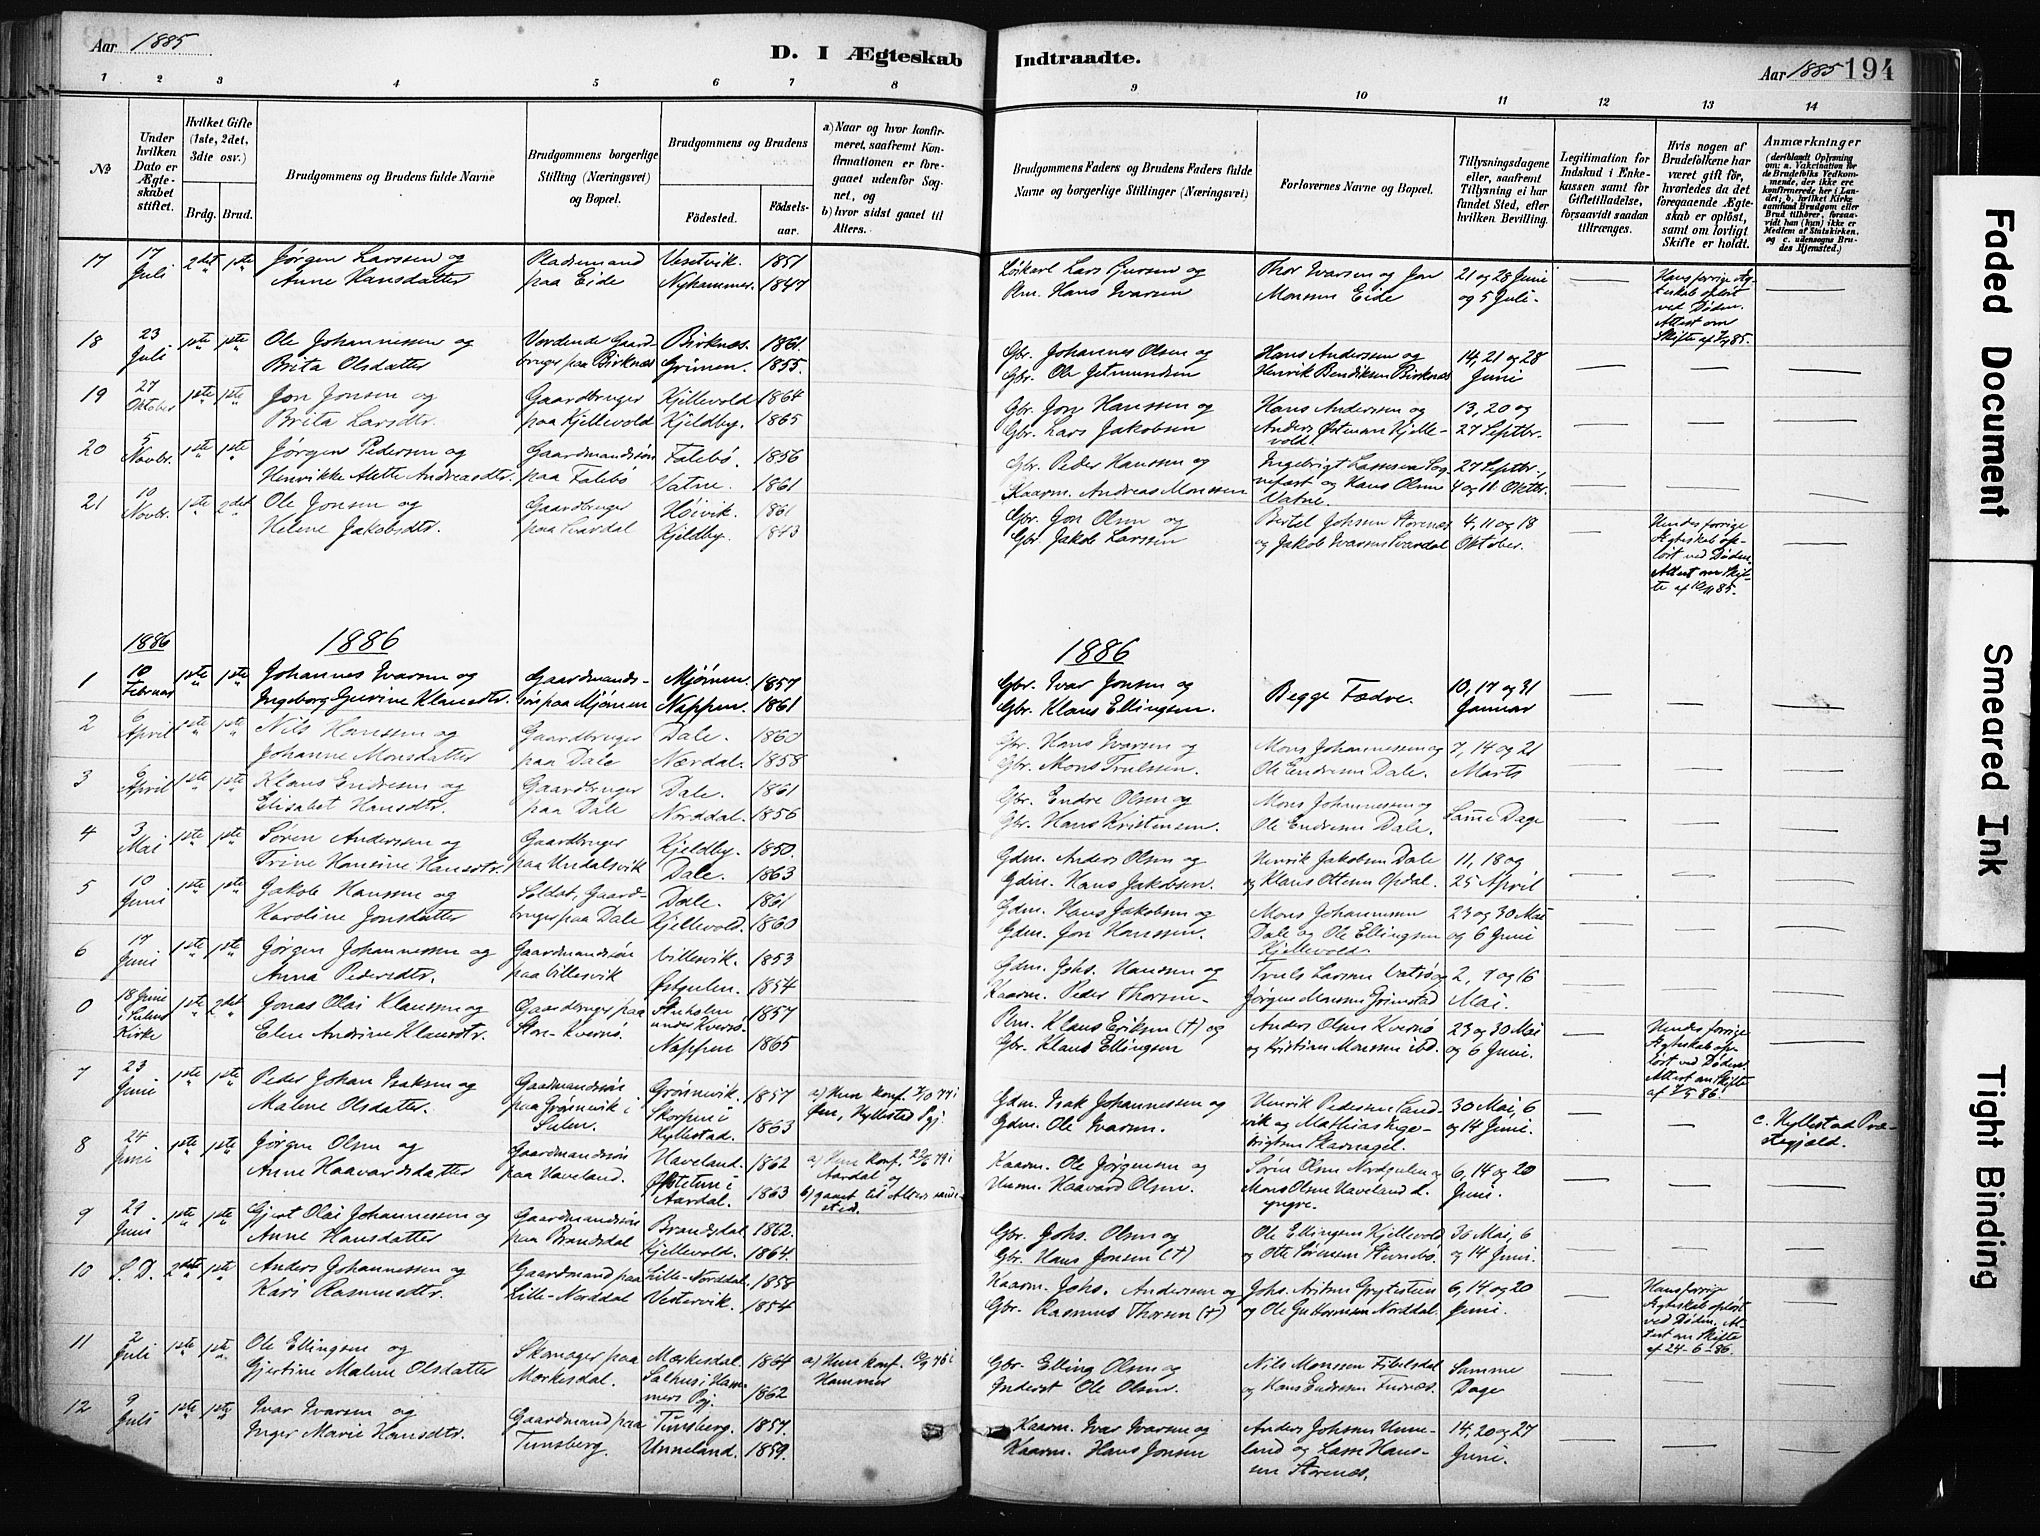 Aar 1885
D. I Ægteskab
Indtraadte.
Aar 1885 194
1 2 3 4 5 6 7 8
9 10 11 12 13 14
№
Under hvilken Dato er Ægteskabet stiftet.
Hvilket Gifte (1ste, 2det, 3die osv.)
Brdg. Brud.
Brudgommens og Brudens fulde Navne
Brudgommens borgerlige Stilling (Næringsvei) og Bopæl.
Brudgommens og Brudens
Fødested. Fødselsaar.
a) Naar og hvor konfirmeret, saafremt Konfirmationen er foregaaet udenfor Sognet, og
b) hvor sidst gaaet til Alters.
Brudgommens Faders og Brudens Faders fulde Navne og borgerlige Stillinger (Næringsvei)
Forlovernes Navne og Bopæl.
Tillysningsdagene eller, saafremt Tillysning ei har fundet Sted, efter hvilken Bevilling.
Legitimation for Indskud i Enkekassen samt for Giftetilladelse, forsaavidt saadan tiltrænges.
Hvis nogen af Brudefolkene har været gift før, hvorledes da det foregaaende Ægteskab er opløst, samt om lovligt Skifte er holdt.
Anmærkninger
(deriblandt Oplysning om: a. Vakcination for de Brudefolks Vedkommende, der ikke ere konfirmerede her i Landet; b. hvilket Kirkesamfund Brudgom eller Brud tilhører, forsaavidt han (hun) ikke er Medlem af Statskirken, og c. udensogns Brudes Hjemsted.)
17 17 Juli 2det 1ste Jørgen Larssen og Pladsmand Vestvik. 1851
Anne Hansdatter paa Eide Nyhammer. 1847
Lars og Thor Ivarsen og Jon 21 og 28 Juni Hans forrige Æg-
Plm. Hans Ivarsen Monsen Eide og 5 Juli. teskab opløst ved Døden. Attest om Skifte af
18 23 Juli 1ste 1ste Ole Johannessen og Vordende Gaard- Birknæs. 1861
Brita Olsdatter bruger paa Birknæs Grimen. 1855.
Gbr. Johannes Olsen og Hans Anderssen og 14, 21 og 28
Gbr. Ole Jetmundsen Henrik Bendiksen Birknæs Juni
19 27 Oktober 1ste 1ste Jon Jonsen og Gaardbruger Kjellevold 1864
Brita Larsdtr. paa Kjellevold Kjeldby. 1865
Gbr. Jon Hanssen og Hans Anderssen og 13, 20 og
Gbr. Lars Jakobsen Anders Østman Kjellevold. 27 Septbr.
20 5 Novbr. 1ste 1ste Jørgen Pedersen og Gaardmandssøn Falebø. 1856
Henrikke Alette Andreasdtr. paa Falebø Vatne. 1861
Gbr. Peder Hanssen og Ingebrigt Lassesen Sog- 27 Septbr.,
Kaarm. Andreas Monssen nefæst og Hans Olsen Vatne. 4 og 11 Oktbr.
21 10 Novbr. 1ste 2det Ole Jonsen og Gaardbruger Høivik. 1861
Helene Jakobsdtr. paa Svardal Kjeldby. 1843
Gbr. Jon Olsen og Bertel Johssen Storenæs 4, 11 og 18 Hendes forrige
Gbr. Jakob Larssen og Jakob Ivarsen Svardal Oktober. Ægteskab opløst ved Døden. Attest om Skifte af 10/11 85.
1886 1886 1886
1 10 Februar 1ste 1ste Johannes Ivarsen og Gaardmands- Mjømen. 1857
Ingeborg Gurine Klausdtr. søn paa Mjømen Nappen. 1861
Gbr. Ivar Jonsen og Begge Fædre. 10, 17 og 31
Gbr. Klaus Ellingsen. Januar
2 6 April 1ste 1ste Nils Hanssen og Gaardbruger Dale. 1860
Johanne Monsdatter paa Dale Nordal. 1858
Gbr. Hans Ivarsen og Mons Johannessen og 7, 14 og 21
Gbr. Mons Trulssen. Ole Endresen Dale. Marts
3 6 April 1ste 1ste Klaus Endresen og Gaardbruger Dale. 1861
Elisabet Hansdtr. paa Dale Norddal. 1856
Gbr. Endre Olsen og Mons Johannessen og Samme Dage
Gbr. Hans Kristensen. Ole Endresen Dale.
4 3 Mai 1ste 1ste Søren Anderssen og Gaardbruger Kjeldby. 1850.
Trine Hansine Hansdtr. paa Undalsvik Dale. 1863
Gdm. Anders Olsen og Henrik Jakobsen Dale 11, 18 og
Gdm. Hans Jakobsen. og Klaus Ottesen Opdal. 25 April
5 10 Juni 1ste 1ste Jakob Hanssen og Soldat, Gaard- Dale. 1861
Karoline Jonsdatter bruger paa Dale Kjellevold. 1860
Gdm. Hans Jakobsen og Mons Johannessen 23 og 30 Mai
Gdm. Jon Hanssen. Dale og Ole Ellingsen Kjellevold. og 6 Juni
6 17 Juni 1ste 1ste Jørgen Johannessen og Gaardmandssøn Villesvik. 1853
Anna Pedersdtr. paa Villesvik Østgulen. 1854
Gdm. Johs. Hanssen og Truls Larssen Vatsø og 2, 7 og 16
Kaarm. Peder Thorsen. Jørgen Monssen Grimstad Mai.
0 18 Juni i Sulens Kirke 1ste 2det Jonas Olai Klaussen og Gaardbruger paa Stuholm under Kvernø 1857
Elen Andrine Klausdtr. Store-Kvernø. Nappen 1865
Plm. Klaus Eriksen (†) og Anders Olsen Kvernø 23 og 30 Mai Hendes forrige
Gbr. Klaus Ellingsen og Kristian Monssen ibd. og 6 Juni. Ægteskab opløst ved Døden. Attest om Skifte af 7/5 86.
7 23 Juni 1ste 1ste Peder Johan Isaksen og Gaardmandssøn Grønevik. 1857 a) Hun konf. i
Malene Olsdatter. paa Grønevik i Sulen. Skorpen i Hyllestad. 1863 Øen, Hyllestad Pgj.
Gdm. Isak Johannessen og Henrik Pedersen Sand- 30 Mai, 6
Gdm. Ole Ivarsen. vik og Mathias Inge- brigtsen Skarnagel. og 14 Juni. c. Hyllestad Præstegjeld.
8 24 Juni 1ste 1ste Jørgen Olsen og Gaardmandssøn Haveland. 1862 a) Hun konf. 22/6 79 i
Anne Haavardsdatter paa Haveland. i Aardal. 1863 Aardal og b) gaaet til Alters sammested.
Kaarm. Ole Jørgensen og Søren Olsen Nordgulen og 6, 14 og 20
Husm. Haavard Olsen. Mons Olsen Haveland d. yngre. Juni.
9 29 Juni 1ste 1ste Gjert Olai Johannessen og Gaardmandssøn Brandsdal 1862.
Anne Hansdatter paa Brandsdal Kjellevold. 1864.
Gbr. Johs. Olsen og Ole Ellingsen Kjellevold 30 Mai, 6
Gbr. Hans Jonsen (†) og Otte Sørensen og 14 Juni.
10 S. D. 2det 1ste Anders Johannessen og Gaardmand paa Lille-Norddal. 1858
Kari Rasmusdtr. Lille-Norddal Vestervik. 1854
Kaarm. Johs. Anderssen og Johs. 6, 14 og 20 Hans forrige
Gbr. Rasmus Thorsen (†) og Ole Guttormsen Norddal Juni. Ægteskab opløst ved Døden. Attest om Skifte af 24-6-86.
11 2 Juli 1ste 1ste Ole Ellingsen og Skomager paa Mørkesdal. 1864 a) Hun konf. i
Gjertine Malene Olsdatter Mørkesdal. Salhus i Hammers Pgj. 1862 Hammer
Gbr. Elling Olsen og Nils Monssen Samme
Inderst Ole Olsen. og Hans Endresen Dage
12 9 Juli 1ste 1ste Ivar Ivarsen og Gaardmand paa Tunsberg. 1857.
Inger Marie Hansdtr. Tunsberg. Unneland. 1859.
Kaarm. Ivar Ivarsen og Anders Johssen Unne- 14, 20 og 27
Kaarm. Hans Jonsen land og Lasse Hans- sen Storenæs. Juni.
Faded Document
Smeared Ink
Tight Binding